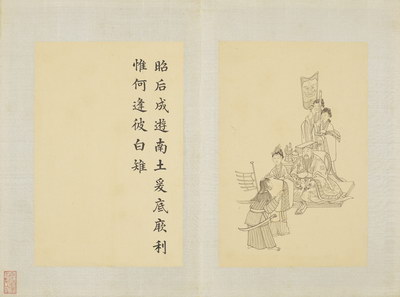 昭后成遊南土爰底厥利
惟何逢彼白雉